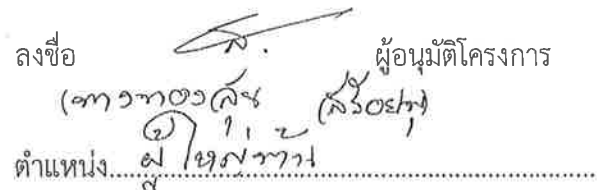 ลงชื่อ ส. ผู้อนุมัติโครงการ
(นางทองสุข
ตำแหน่ง...ผู้ใหญ่บ้าน